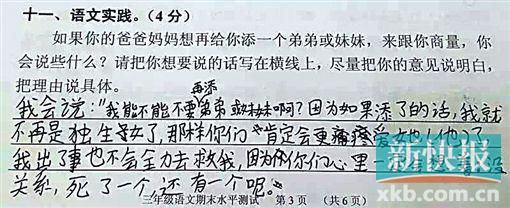 十一、语文实践。(4分)
如果你的爸爸妈妈想再给你添一个弟弟或妹妹，来跟你商量，你
会说些什么？请把你想要说的话写在横线上，尽量把你的意见说明白，
把理由说具体。
再添
我会说：“我能不能不要弟弟或妹妹啊？因为如果添了的话，我就
不再是独生女了，那样你们肯定会更疼爱她(他)了，
我出了事也不会全力去救我，因为你们心里一定会想着没
关系，死了一个，还有一个呢。”
新快报
xkb.com.cn
三年级语文期末水平测试 第3页 (共6页)